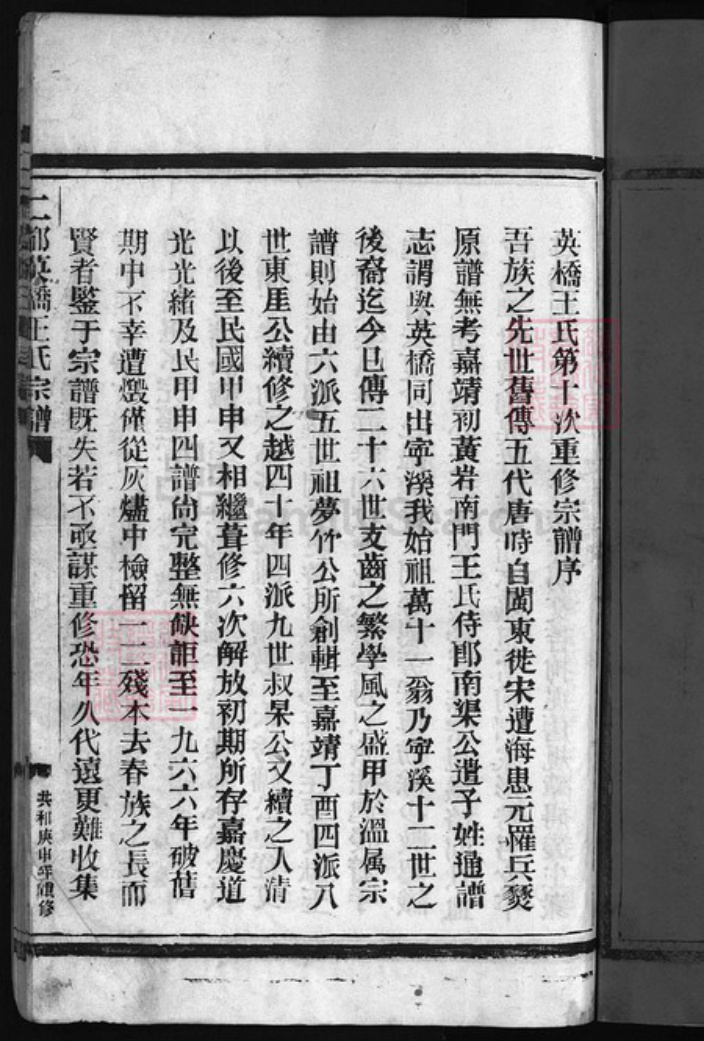 英橋王氏第十次重修宗譜序
吾族之先世舊傳五代唐時自閩東徙宋遭海患元罹兵燹
原譜無考嘉靖初黃岩南門王氏侍郎南渠公遣子姓通譜
志謂與英橋同出寧溪我始祖萬十一翁乃寧溪十二世之
後裔迄今巳傳二十六世支齒之繁學風之盛甲於溫属宗
譜則始由六派五世祖夢竹公所創輯至嘉靖丁酉四派八
世東厓公續修之越四十年四派九世叔杲公又續之入清
以後至民國甲申又相繼葺修六次解放初期所存嘉慶道
光光緒及民甲申四譜尙完整無缺詎至一九六六年破舊
期中不幸遭燬僅從灰燼中檢留一二殘本去春族之長而
賢者鑒于宗譜既失若不亟謀重修恐年久代遠更難收集
二都英橋王氏宗譜
共和庚申年重修